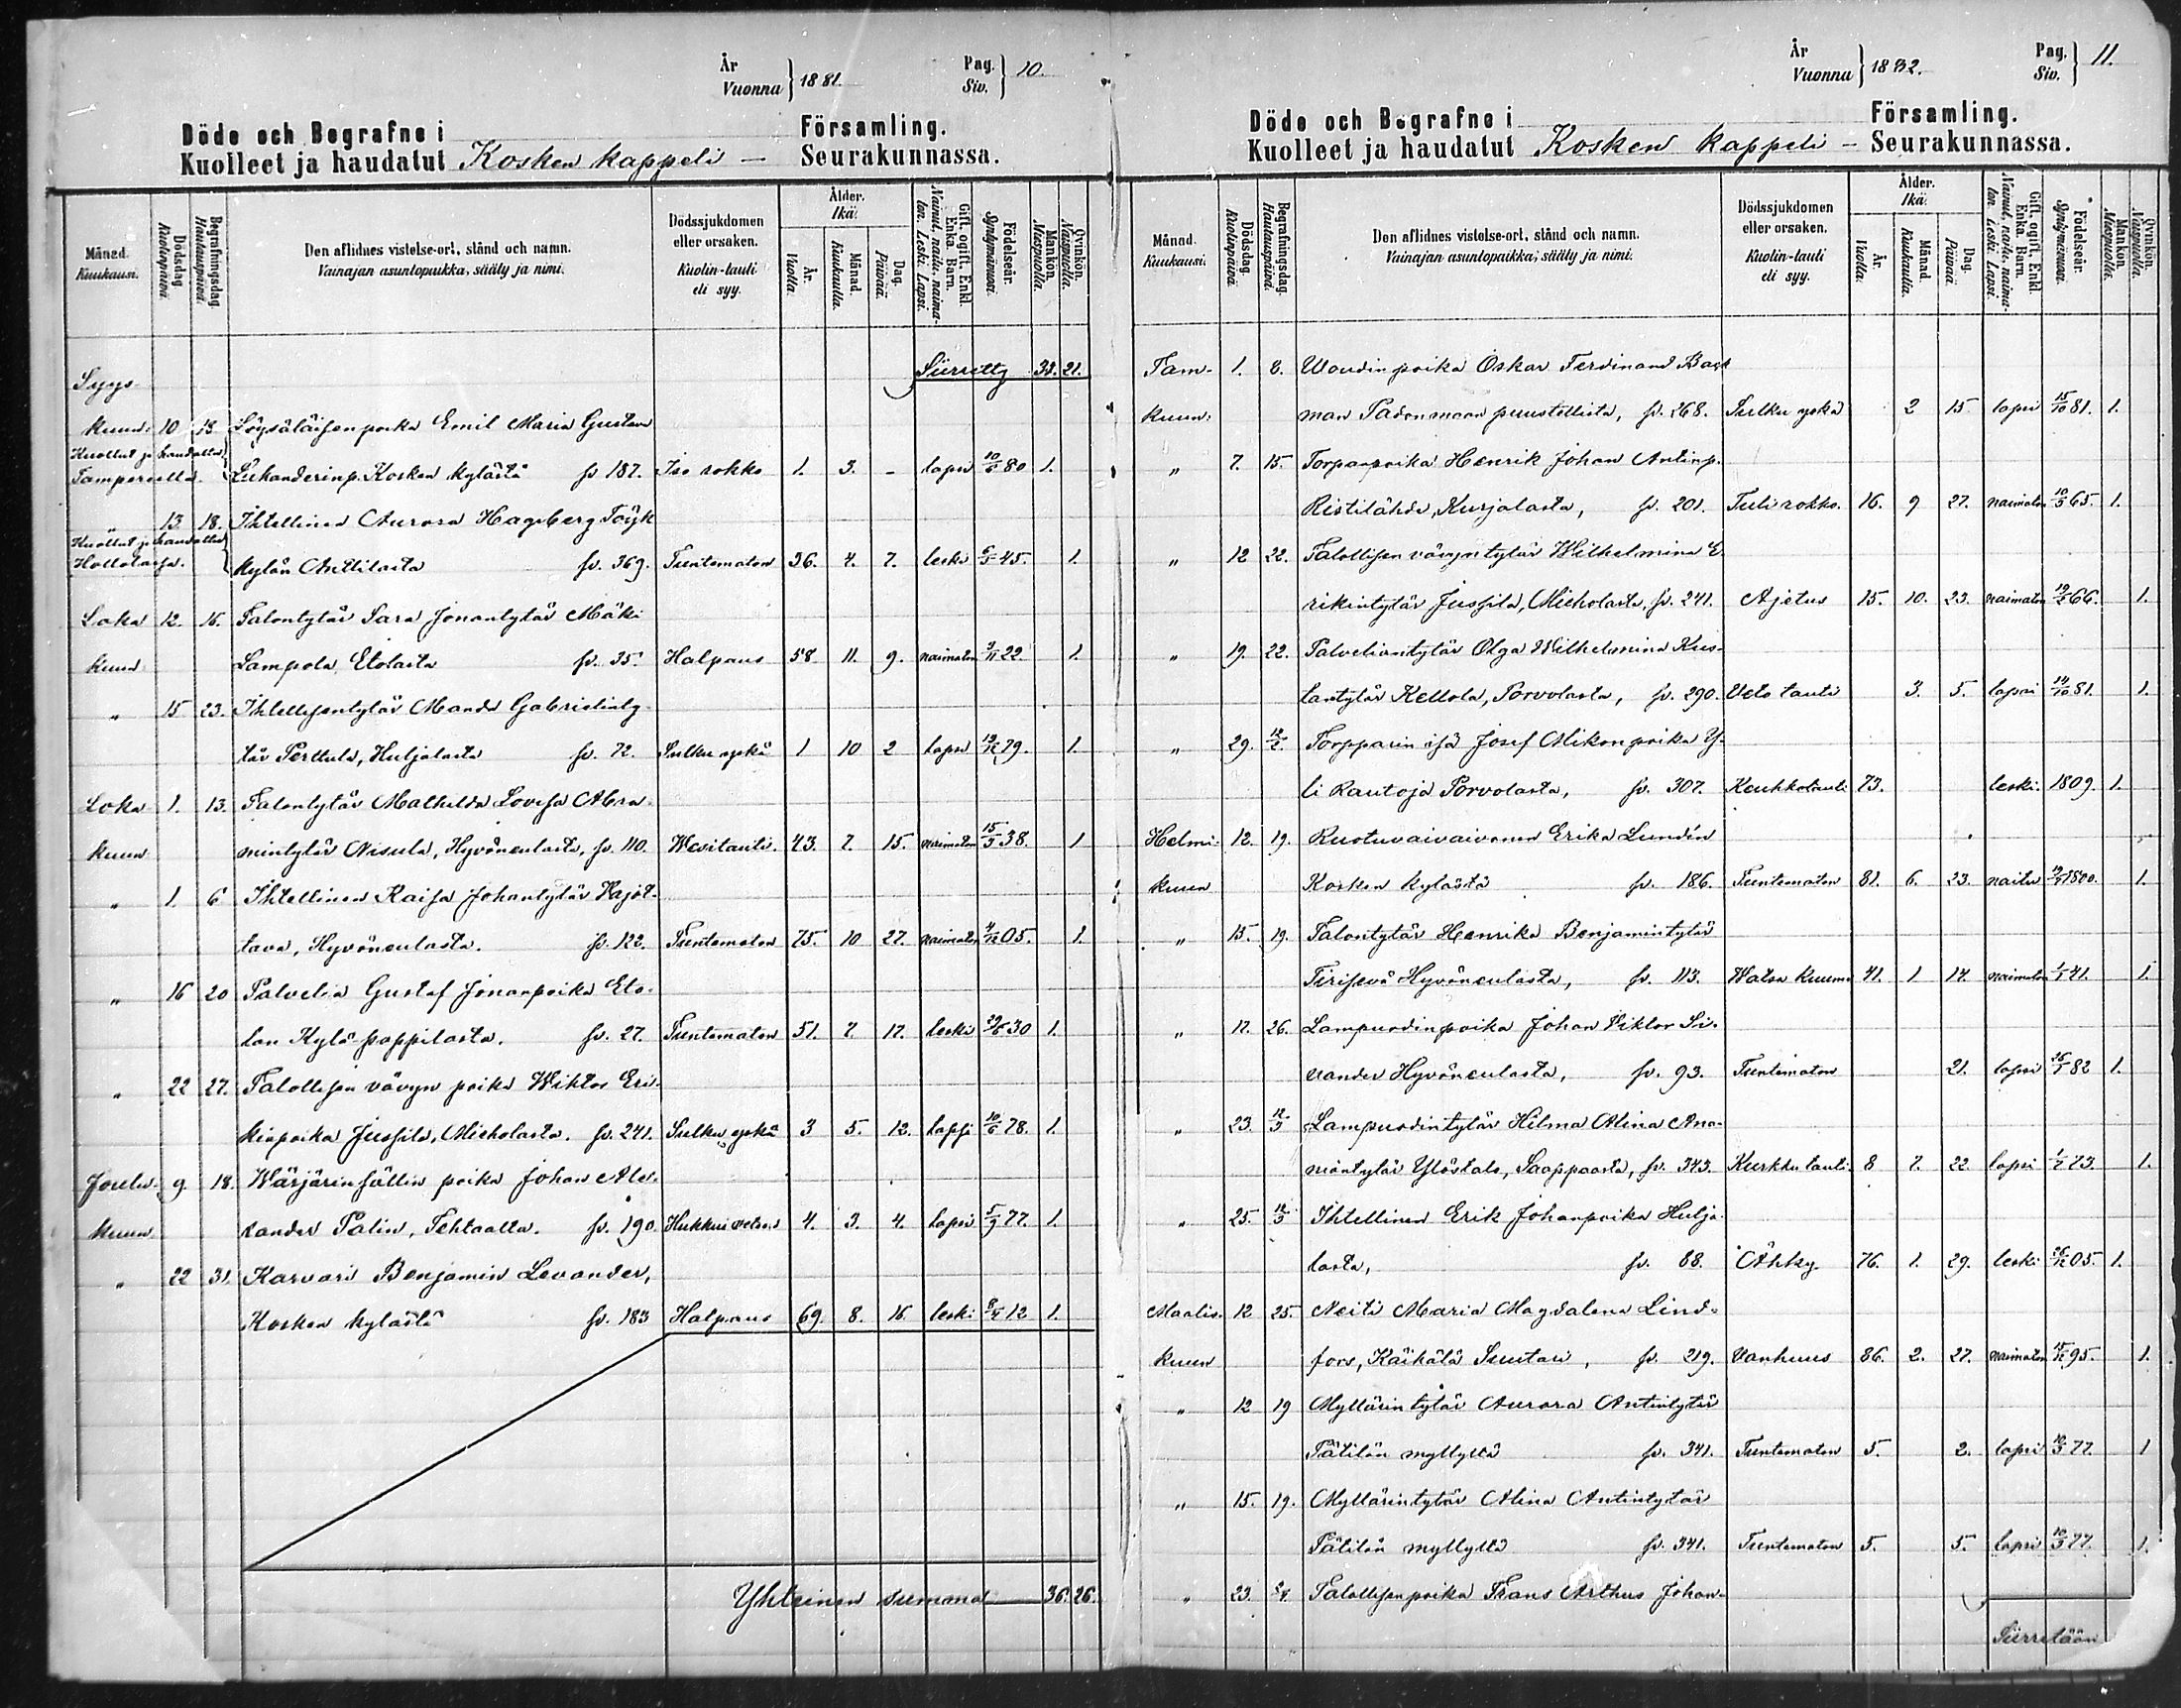 År
Vuonna } 1881.
Pag.
Siv. } 10.
Döde och Begrafne i Församling.
Kuolleet ja haudatut Kosken kappeli – Seurakunnassa.
Månad. Kuukausi.
Dödsdag. Kuolinpäivä.
Begrafningsdag. Hautauspäivä.
Den aflidnes vistelse-ort, stånd och namn.
Vainajan asuntopaikka, sääty ja nimi.
Dödssjukdomen eller orsaken.
Kuolin-tauti eli syy.
Ålder. Ikä.
År. Vuotta.
Månad. Kuukautta.
Dag. Päivää.
Gift, ogift. Enkl. Enka. Barn.
Nainut, naitu, naimaton. Leski. Lapsi.
Födelseår. Syntymävuosi.
Mankön. Miespuolia.
Qvinkön. Naispuolia.
Siirretty 33. 21.
Syys
kuun 10 18 Emil Maria Gustav
Kuollut ja haudattu
Tampereella. Lukanderinp. Kosken kylästä fv 187. Iso rokko 1. 3. - lapsi 10/6 80 1.
„ 13 18. Ihtellinen Aurora Hagelberg
Kuollut ja haudattu
Hollolassa. kylän Anttilasta fv. 369. Tuntematon 36. 4. 7. leski 6/5 45. 1.
Loka 12. 16. Talontytär Sara Jonantytär Mäki
kuun Lampola, Etolasta fv. 35. Halpaus 58 11. 9. naimaton 3/11 22. 1.
„ 15 23. Ihtellisentytär Manda Gabrielinty
tär Perttula, Huljalasta fv. 72. Sulku yskä 1 10 2 lapsi 13/12 79. 1.
Loka 1. 13. Talontytär Mathilda Lovisa Abra
mintytär Nisula, Hyväneulasta, fv. 110. Wesitauti. 43. 7. 15. naimaton 15/3 38. 1
kuun
„ 1. 6 Ihtellinen Kaisa Johantytär Hajot
tava, Hyväneulasta. fv. 122. Tuntematon 75. 10 27. naimaton 4/12 05. 1.
„ 16 20 Palvelia Gustaf Jonanpoika Eto
lan Kyläpappilasta. fv. 27. Tuntematon 51. 7. 17. leski 29/6 30 1.
„ 22 27. Talollisen vävyn poika Wiktor Eri
kinpoika Jussila, Mieholasta. fv. 241. Sulku yskä 3 5. 12. lapsi 10/6 78. 1.
Joulu 9. 18. Wärjärinsällin poika Johan Ale
kuun xander Palin, Tehtaalta. fv. 190. Hukkui veteen 4. 3. 4. lapsi 5/9 77. 1.
„ 22 31 Karvari Benjamin Levander,
Kosken kylästä fv. 183 Halpaus 69. 8. 16. leski 8/4 12 1.
Yhteinen summa 36. 26.
År
Vuonna } 1882.
Pag.
Siv. } 11.
Döde och Begrafne i Församling.
Kuolleet ja haudatut Kosken kappeli – Seurakunnassa.
Månad. Kuukausi.
Dödsdag. Kuolinpäivä.
Begrafningsdag. Hautauspäivä.
Den aflidnes vistelse-ort, stånd och namn.
Vainajan asuntopaikka, sääty ja nimi.
Dödssjukdomen eller orsaken.
Kuolin-tauti eli syy.
Ålder. Ikä.
År. Vuotta.
Månad. Kuukautta.
Dag. Päivää.
Gift, ogift. Enkl. Enka. Barn.
Nainut, naitu, naimaton. Leski. Lapsi.
Födelseår. Syntymävuosi.
Mankön. Miespuolia.
Qvinkön. Naispuolia.
Tam- 1. 8. Woudinpoika Oskar Ferdinand Back
kuun. man Padonmaan puustellista, fv. 268. Sulku yskä 2 15 lapsi 15/10 81. 1.
„ 7. 15. Torparpoika Henrik Johan Antinp.
Ristilähde, Kurjalasta, fv. 201. Tulirokko. 16. 9 27. naimaton 10/3 65. 1.
„ 12 22. Talollisen vävyn tytär Wilhelmina E
rikintytär Jussila, Mieholasta, fv. 241. Ajetus 15. 10. 23. naimaton 19/2 66. 1.
„ 19. 22. Palveliantytär Olga Wilhelmina Kus
tantytär Kellola, Porvolasta, fv. 290. Veto tauti 3. 5. lapsi 14/10 81. 1.
„ 29. 12/2 Torpparin isä Josef Mikonpoika Y
li Rautoja Porvolasta, fv. 307. Keuhkotauti 73. leski 1809. 1.
Helmi 12. 19. Ruotuvaivainen Erika Lundén
kuun Kosken kylästä fv. 186. Tuntematon 81. 6. 23. naitu 1800. 1.
„ 15. 19. Talontytär Henrika Benjamintytär
Tirisevä Hyväneulasta, fv. 113. Watsa kuume 41. 1 14. naimaton 1/1 41. 1.
„ 17. 26. Lampuodinpoika Johan Viktor Si
nander Hyväneulasta, fv. 93. Tuntematon 21. lapsi 26/1 82 1.
„ 23. 12/3 Lampuodintytär Hilma Alina Ana
niantytär Ylöstalo, Saappaasta, fv. 343. Kurkku tauti. 8 7. 22. lapsi 1/7 73. 1.
„ 25. 12/3 Ihtellinen Erik Johanpoika Hulja
lasta, fv. 88. Ähky. 76. 1. 29. leski 26/12 05. 1.
Maalis. 12 25. Neiti Maria Magdalena Lind
kuun fors, Käikälä Suntari, fv. 219. Vanhuus 86. 2. 27. naimaton 15/12 95. 1.
„ 12 19 Myllärintytär Aurora Antintytär
Pätilän myllystä fv. 341. Tuntematon 5. 2. lapsi 10/3 77. 1
„ 15. 19. Myllärintytär Alina Antintytär
Pätilän myllystä fv. 341. Tuntematon 5. 5. lapsi 10/3 77. 1.
„ 23. Talollisenpoika Frans Arthur Johan-
Siirretään